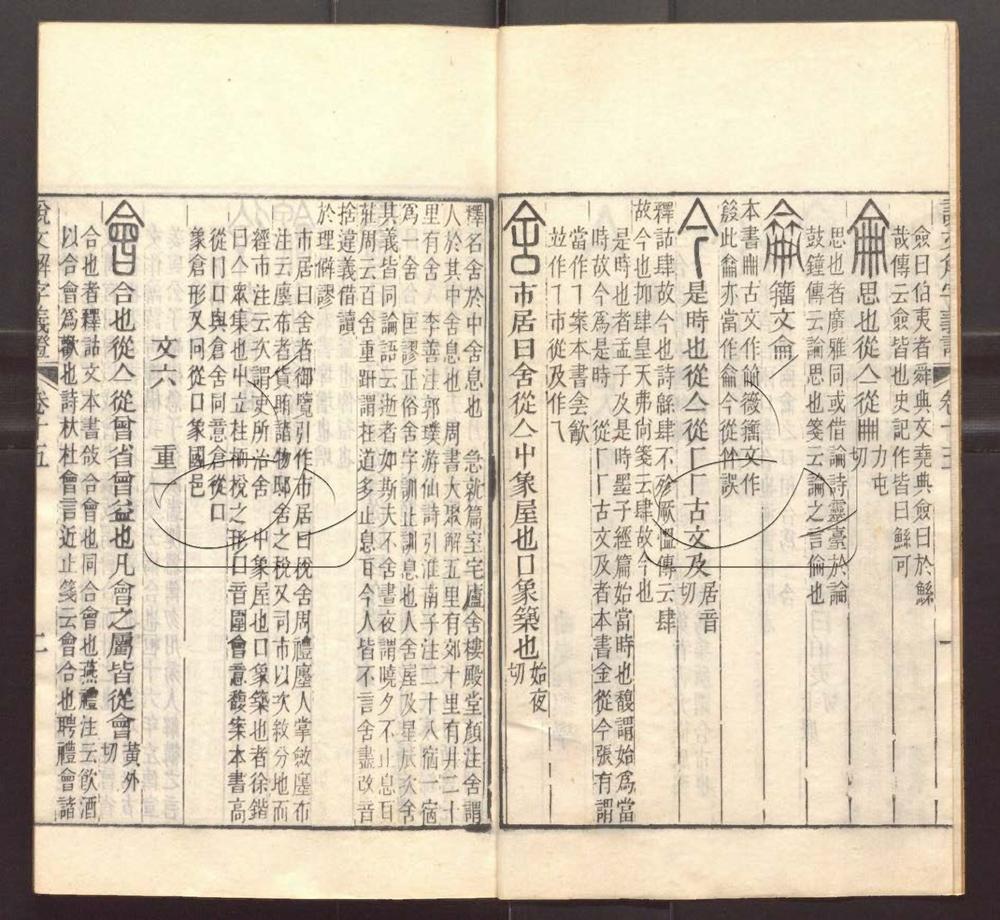 僉曰伯夷者舜典文堯典僉曰於鯀
哉傳云僉皆也史記作皆曰鯀可
侖 思也從亼從冊 力屯切
思也者廣雅同或借論詩靈臺於論
鼓鐘傳云論思也箋云論之言倫也
籀文侖
本書冊古文作
籀文作
此
亦當作侖今從
誤
今 是時也從亼從㇇㇇古文及 居音切
釋詁肆故今也詩緜肆不殄厥慍傳云肆
故今也抑肆皇天弗尚箋云肆故今也
是時也者孟子及是時墨子經篇始當時也馥謂始爲當
時故今爲是時 從㇇㇇古文及者本書金從今張有謂
當作㇇案本書
竝作㇇
從
及作乁
舍 市居曰舍從亼屮象屋也口象築也 始夜切
釋名舍於中舍息也 急就篇室宅廬舍樓殿堂顏注舍謂
人於其中舍息也 周書大聚解五里有郊十里有井二十
里有舍 李善注郭璞游仙詩引淮南子注二十八宿一宿
爲一舍 匡謬正俗舍字訓止訓息也人舍屋及星辰次舍
其義皆同論語云逝者如斯夫不舍晝夜謂曉夕不止息耳
莊周云百舍重趼謂在道多止息耳今人皆不言舍盡改音
捨違義借讀
於理僻謬
市居曰舍者御覽引作市居曰梲舍周禮廛人掌斂廛布
注云廛布者貨賄諸物邸舍之稅又司市以次敘分地而
經市注云次謂吏所治舍 屮象屋也口象築也者徐鍇
曰亼衆集也屮立柱橫梲之形口音圍會意馥案本書高
從冂口與倉舍同意倉從口
象倉形又囘從口象國邑
文六 重一
會 合也從亼從曾省曾益也凡會之屬皆從會 黃外切
合也者釋詁文本書敆合會也同合會也燕禮注云飲酒
以合會爲歡也詩杕杜會言近止箋云會合也聘禮會諸
說文解字義證 卷十五